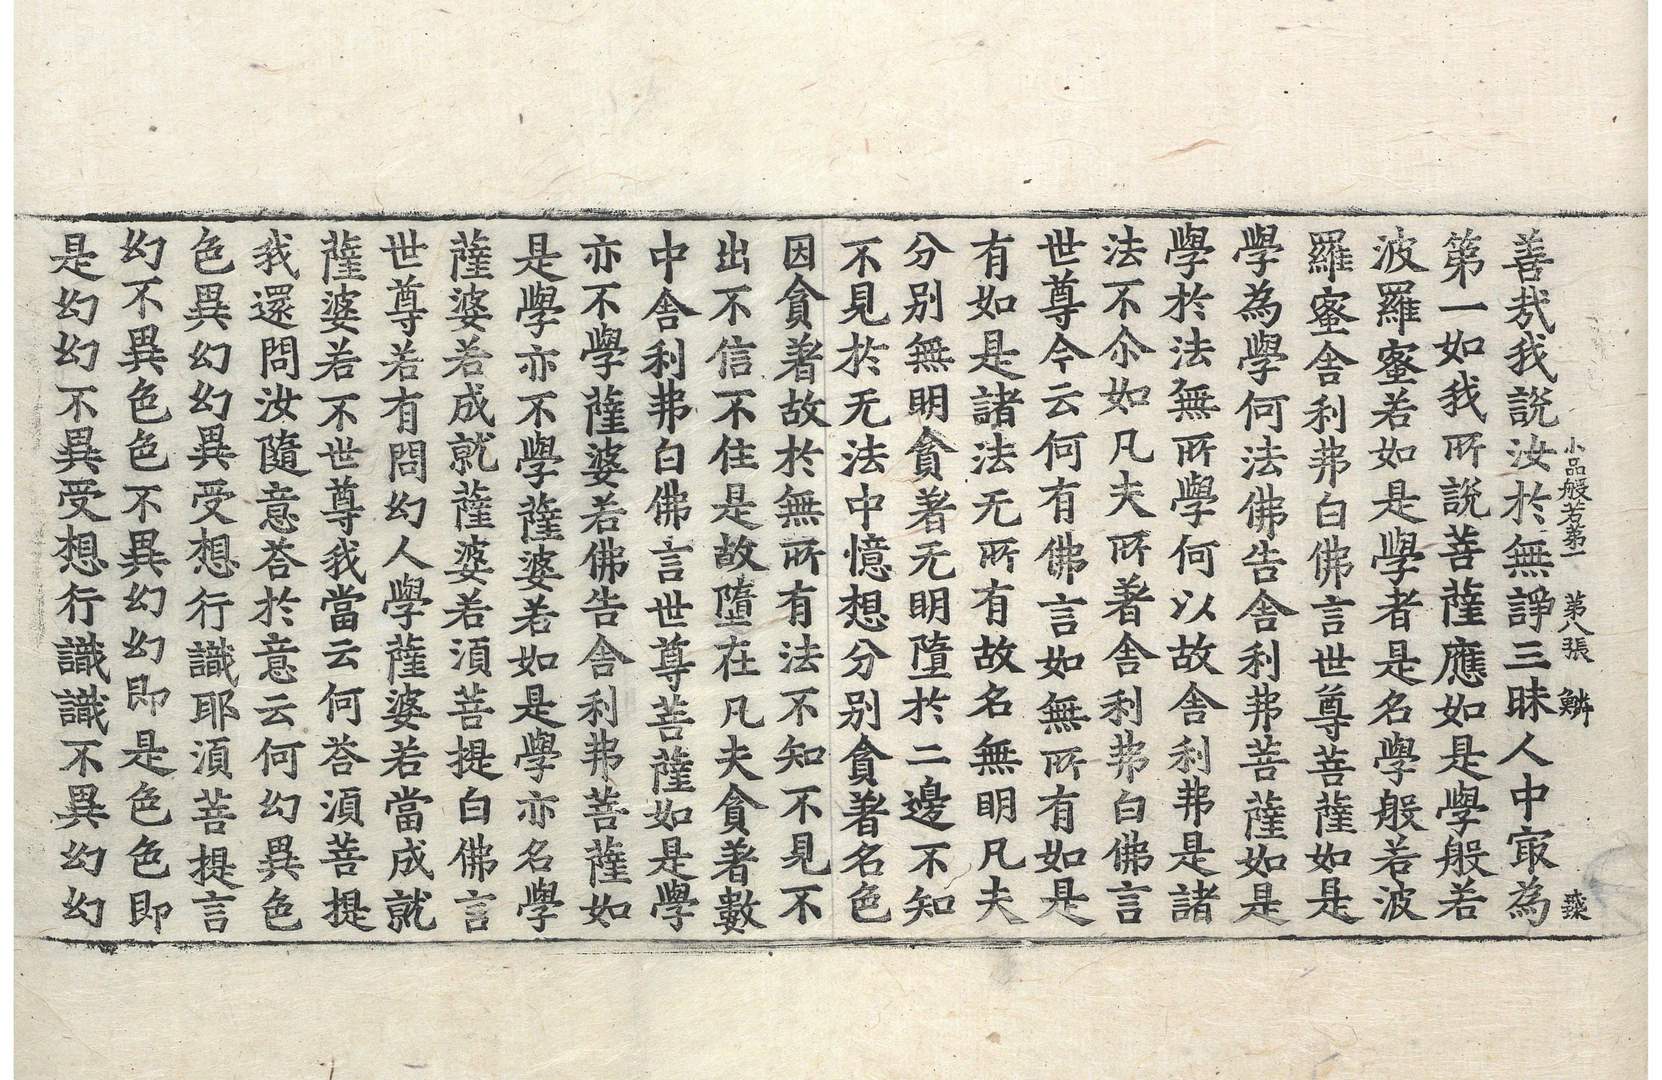 小品般若第一 第八張 鱗
善㢤我說汝於無諍三昧人中㝡為
第一如我所說菩薩應如是學般若
波羅蜜若如是學者是名學般若波
羅蜜舎利弗白佛言世尊菩薩如是
學為學何法佛告舎利弗菩薩如是
學於法無所學何以故舎利弗是諸
法不尒如凡夫所著舎利弗白佛言
世尊今云何有佛言如無所有如是
有如是諸法无所有故名無明凡夫
分別無明貪著无明墮於二邊不知
不見於无法中憶想分別貪著名色
因貪著故於無所有法不知不見不
出不信不住是故墮在凡夫貪著數
中舎利弗白佛言世尊菩薩如是學
亦不學薩婆若佛告舎利弗菩薩如
是學亦不學薩婆若如是學亦名學
薩婆若成就薩婆若湏菩提白佛言
世尊若有問幻人學薩婆若當成就
薩婆若不世尊我當云何荅湏菩提
我還問汝隨意荅於意云何幻異色
色異幻幻異受想行識耶湏菩提言
幻不異色色不異幻幻即是色色即
是幻幻不異受想行識識不異幻幻